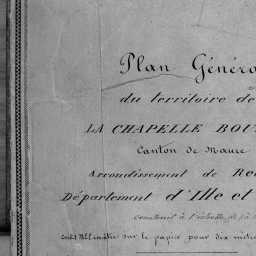 Plan Généra
du territoire de
LA CHAPELLE BOU
Canton de Maure
Arrondissement de Re
Département d'Ille et
construit à l'échelle de
mètre sur le papier pour dix mètre